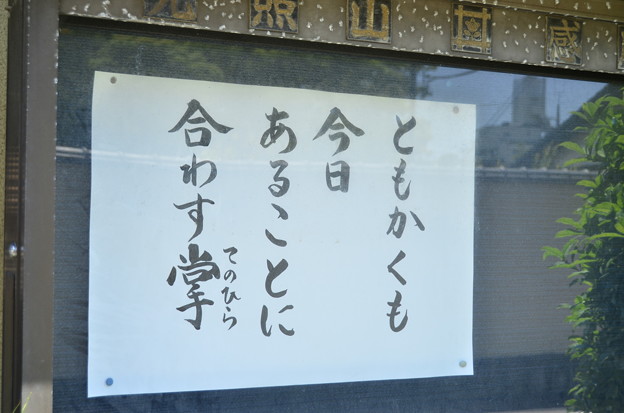 照山 感
ともかくも
今日
あることに
合わす掌
てのひら